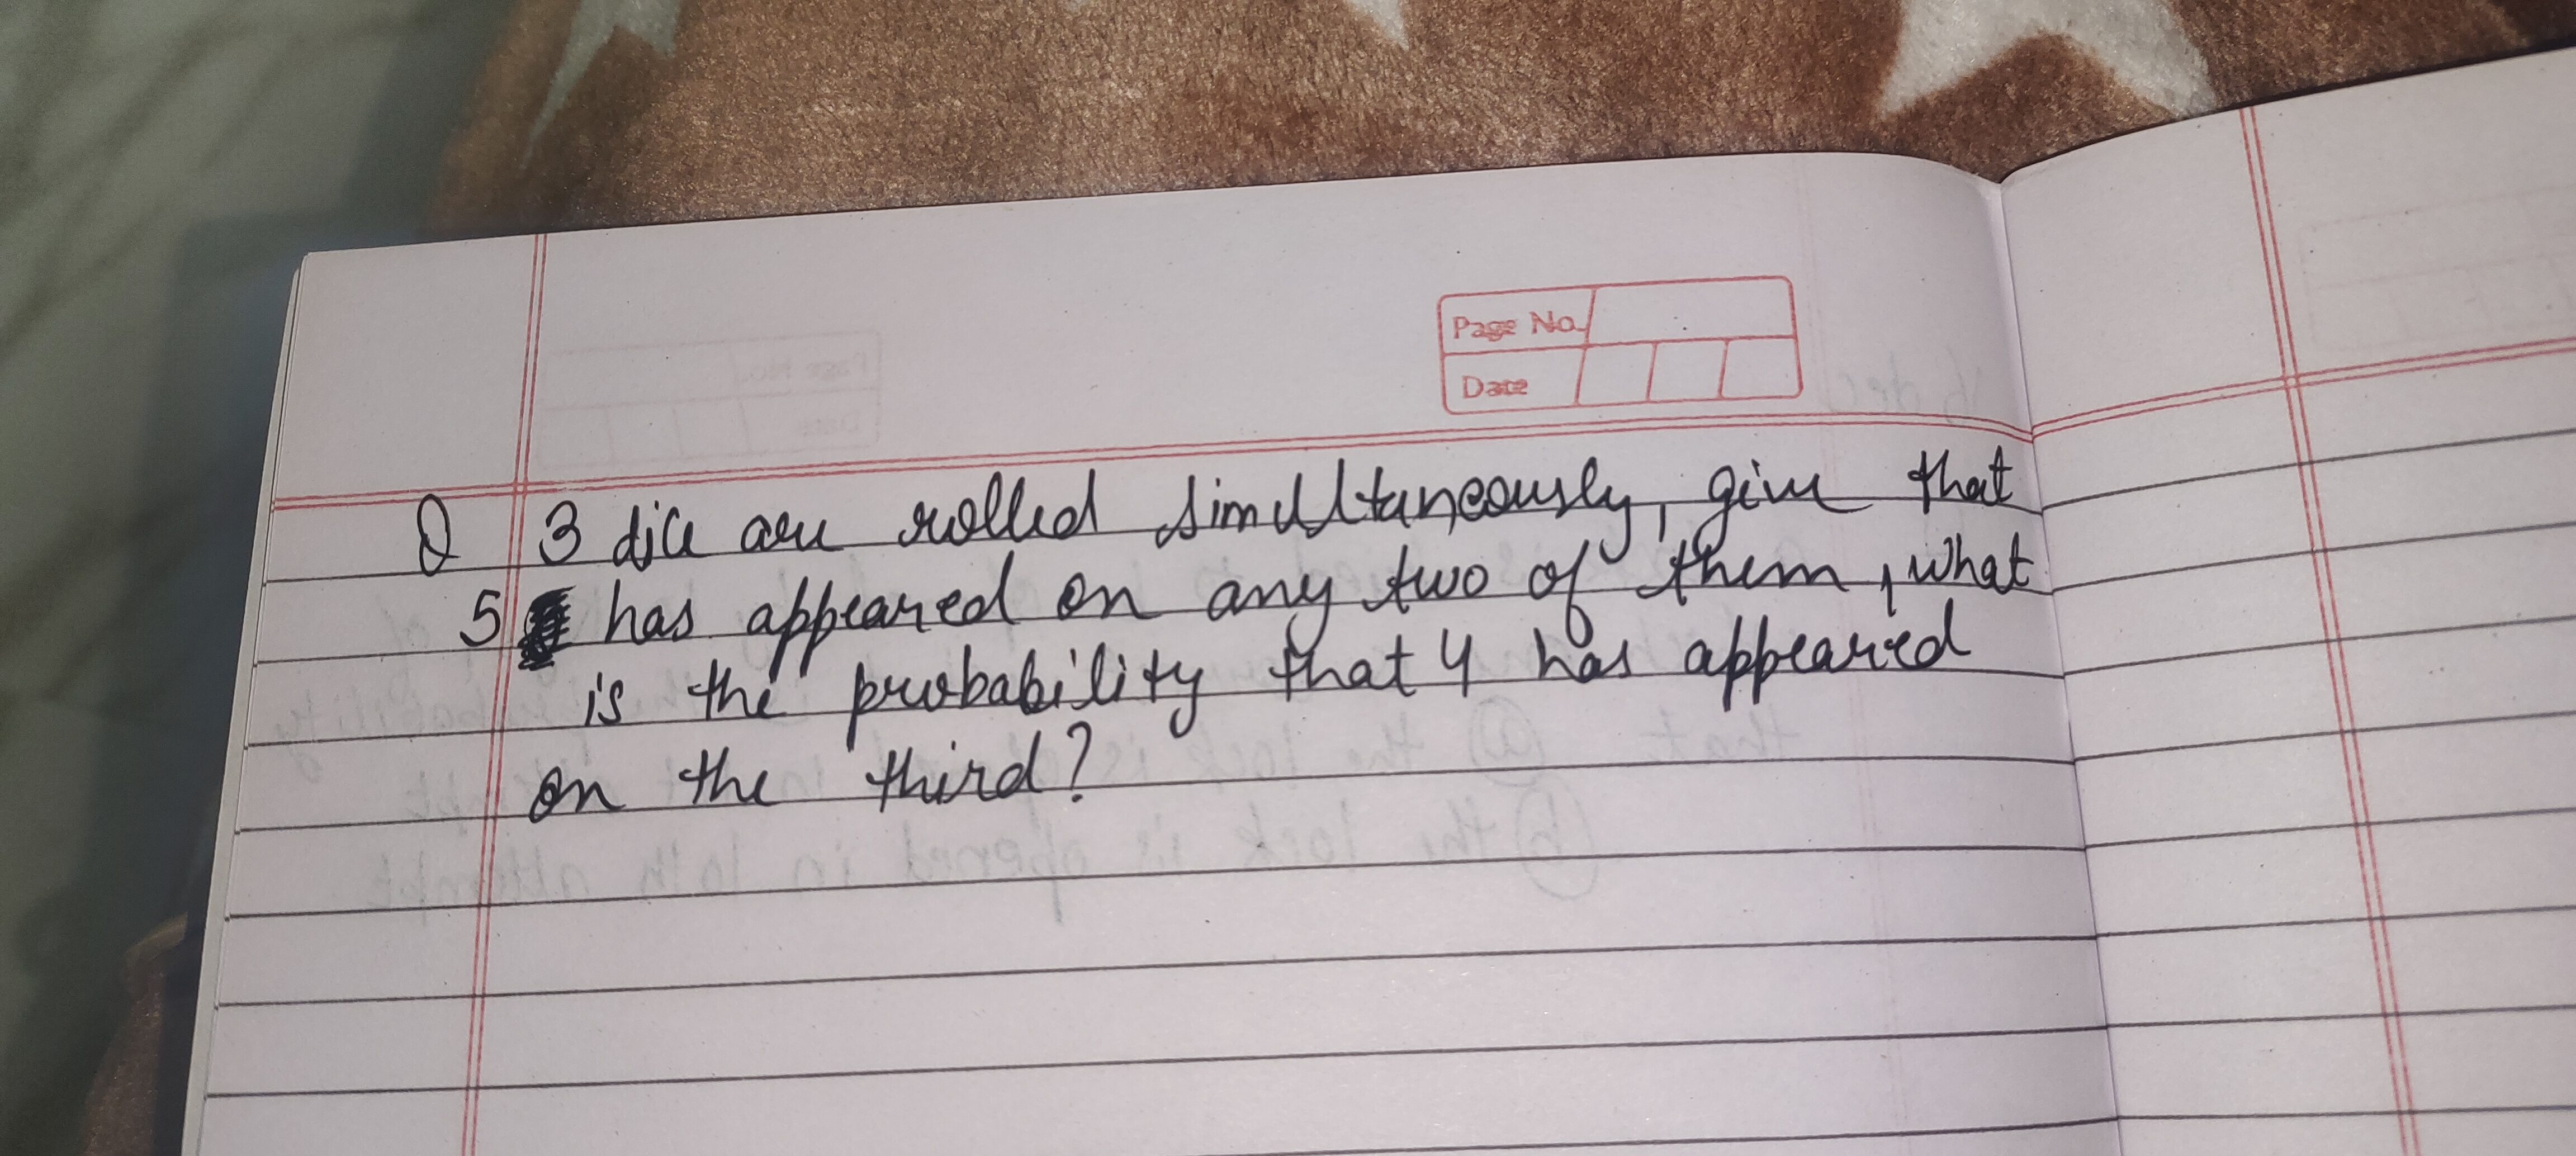 Page No.
Date
Q 3 dice are rolled simultaneously, give that
5 has appeared on any two of them, what
is the probability that 4 has appeared
on the third?